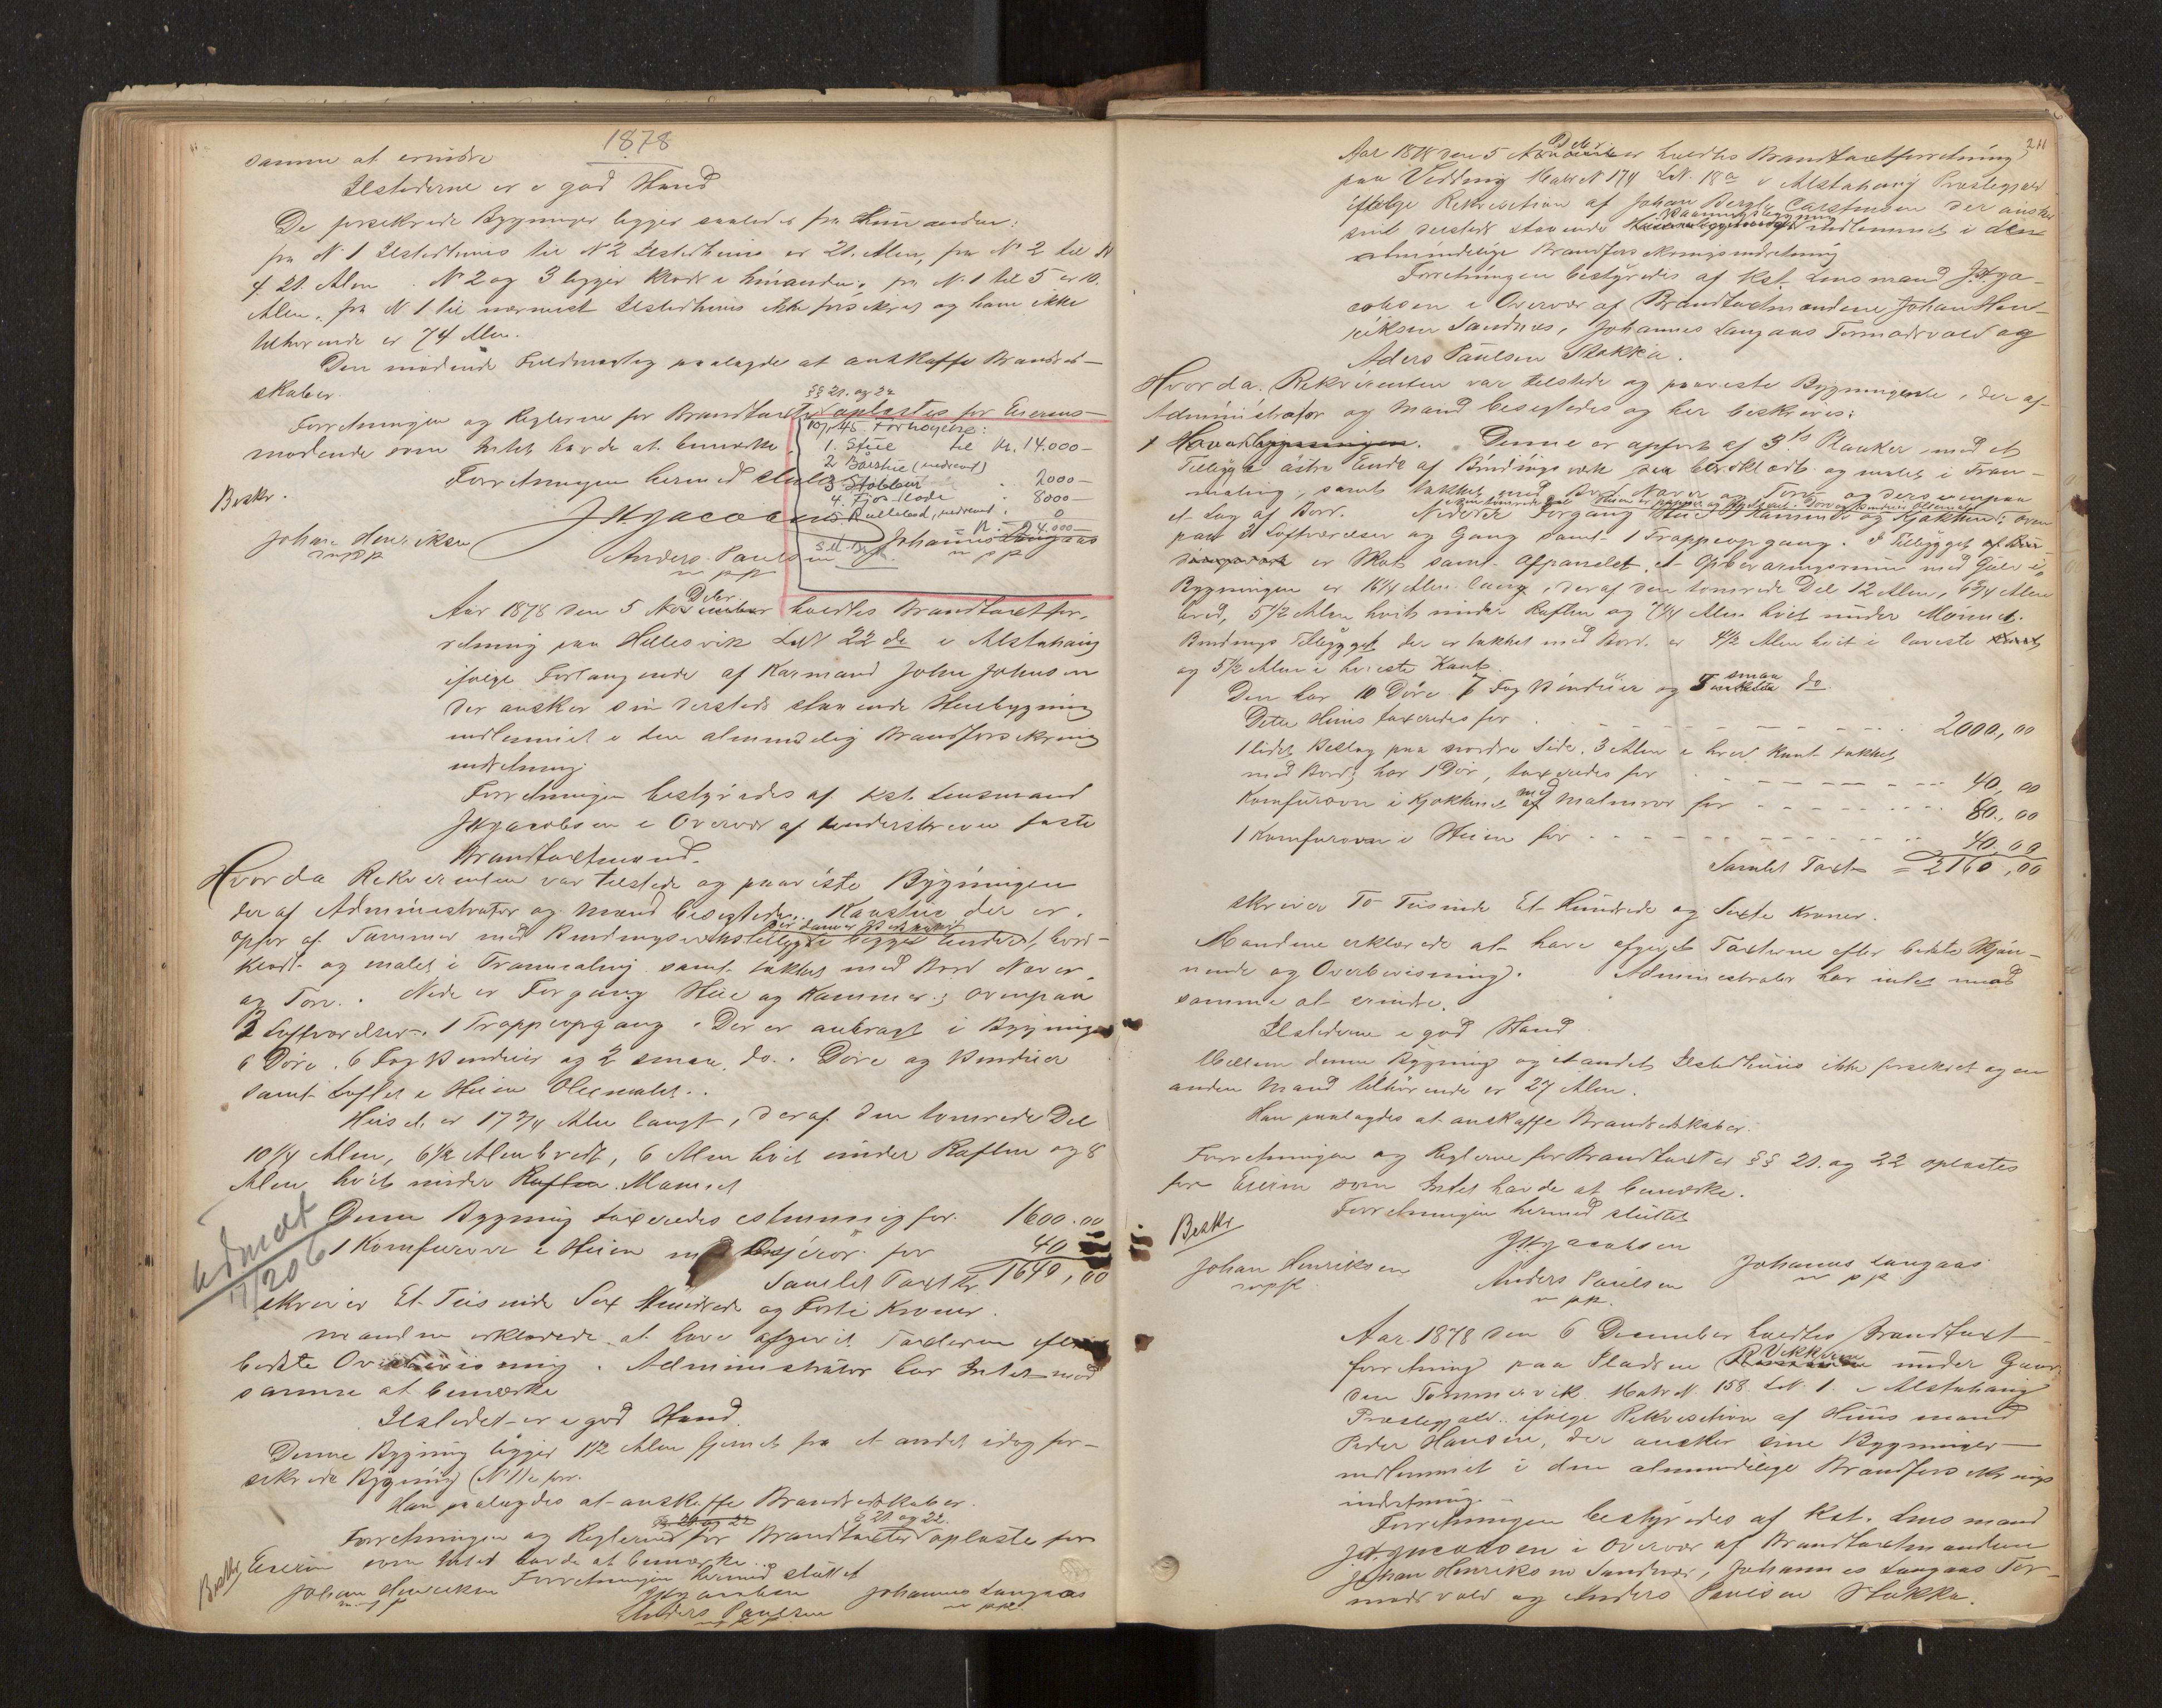 1878
samme at erindre
Ildstederne er i god Stand
De forsekrede Bygninger ligger saaledes fra Hinanden:
fra N. 1 Ildstedhuus til N 2 Ildstedhuus er 21. Alen, fra N 2 til N
4. 21. Alen. N 2 og 3 ligger i hinanden, fra N. 1 til 5 er 10.
Alen, fra N 1 til nærmest Ildstedhuus ikke forsikret og ham ikke
tilhørende er 74 Alen.
Den mødende Fuldmægtig paalagde at anskaffe Brandred-
skaber.
§§ 21. og 22
Forretningen og Reglerne for Brandtaxter oplæstes for Eierens
mødende som Intet havde at bemærke.
Forretningen hermed sluttet
10/1 45. Forhøyelse:
1. Stue til Kr. 14.000-
2 Bårstue (nedrevet)
3 Stabbur 2000-
4. Fjøs-lade 8000-
5. nedrevet, 0
Kr. 24.000-
Beskr.
JHJacobsen
Johan Henriksen
mpp
Anders Paulsen
m pp
Johannes Langaas
m pp
Aar 1878 den 5 November Dcbr. holdtes Brandtaxtfor-
retning paa Hellesvik LN 22 de i Alstahaug
ifølge Forlangende af Kaarmand John Johnsen
der ønsker sin dersteds staaende Huusbygning
indlemmet i den almindelig Brandforsekrings
indretning.
Forretningen bestyredes af Kst. Lensmand
JHJacobsen i Overvær af underskrevne faste
Brandtaxtmænd.
Hvorda Rekverenten var tilstede og paaviste Bygningen
der af Administrator og Mænd besigtedes. Kaarstue der er.
opfør af Tømmer med Bindingsverkstilbygg i begge Ender, bord-
klædt og malet i Tranmaling samt takket med Bord Næver.
og Torv. Nede er Forgang Stue og Kammer; ovenpaa
2 Loftværelser. 1 Trappeopgang. Der er anbragt i Bygningen
6 Døre. 6 Fag Vinduer og 2 smaa do. Døre og Vinduer
samt Loftet i Stuen Oliemalet.
Huset er 17 3/4 Alen langt, deraf den tømrede Del
10 1/4 Alen, 6 1/2 Alen bredt, 6 Alen høit under Raften og 8
Alen høit under Raften Mønnet
Denne Bygning taxeredes for 1600.00
1 Komfurovn i Stuen med for 40
Samlet Taxt Kr 1640,00
skriver Et Tusinde Sex Hundrede og Forti Kroner.
udmeldt
17/206
Mændene erklærede at have afgivet Taxterne efter
bedste Overbevisning. Administrator har Intet mod
samme at bemærke
Ildstedet er i god Stand.
Denne Bygning ligger 11 1/2 Alen fjernet fra et andet idag for-
sekrede Bygning (N 1) i forr.
Han paalagdes at anskaffe Brandredskaber.
§ 21. og 22.
Forretningen og Reglerne for Brandtaxter oplæste for
Eieren som Intet havde at bemærke.
Forretningen hermed sluttet
Beskr,
Johan Henriksen
JHJacobsen
Johannes Langaas
m pp
Anders Paulsen
m pp
211
Aar 1878 den 5 November Dcbr. holdtes Brandtaxtforretning
paa Vedding Matr N 174 LN. 18a i Alstahaug Præstegjæld
ifølge Rekvisition af Johan Bergh Carstensen der ønsker
sine dersteds staaende Vaaningsbygning indlemmet i den
almindelige Brandforsekringsindretning
Forretningen bestyredes af Kst. Lensmand J.H.Ja-
cobsen i Overvær af Brandtaxtmændene Johan Hen-
riksen Sandnes, Johannes Langaas Tormodsvold og
Aders Paulsen Stokka.
Hvorda. Rekvirenten var tilstede og paaviste Bygningerne, der af
Administrator og Mænd besigtedes og her beskrives:
1 Hovedbygningen. Denne er opført af 3 Raaker med et
Tilbygg i østre Ende af Bindingsverk bordklædt og malet i Tran-
maling, samt takket med Bord Næver og Torv og ders ovenpaa
et Lag af Bord. Nede er Forgang Stue Kammer og Kjøkken; oven
paa 3 Loftværelser og Gang samt 1 Trappeopgang. I Tilbygget af Bin-
dingsverk er Skot samt Afpanelet et Opbevaringsrum med Gulv i.
Bygningen er 16 1/4 Alen lang, deraf den tømrede Del 12 Alen, 6 3/4 Alen
bred, 5 1/2 Alen høit under Raften og 7 1/4 Alen høit under Mønnet.
Bindings Tilbygget der er takket med Bord. er 4 1/2 Alen høit i laveste Kant
og 5 1/2 Alen i høieste Kant.
Den har 10 Døre 7 Fag Vinduer og 3 smaa do.
Dette Huus taxeredes for 2000,00
1 lidet Beslag paa nordre Side. 3 Alen i hver Kant takket
med Bord; har 1 Dør, taxeredes for 40,00
Komfurovn i Kjøkkenet med Malmrør for 80.,00
1 Komfurovn i Stuen for 40,00
Samlet Taxt = 2160,00
skriver To Tusinde Et Hundrede og Sexti Kroner.
Mændene erklærede at have afgivet Taxterne efter bedste Skjøn-
nende og Overbevisning. Administrator har intet mod
samme at erindre.
Ildstederne i god Stand.
Mellem denne Bygning og et andet Ildstedhuus ikke forsekret og en
anden Mand tilhørende er 27 Alen.
Han paalagdes at anskaffe Brandredskaber.
Forretningen og Reglerne for Brandtaxter §§ 21. og 22 oplæstes
for Eieren som Intet havde at bemærke.
Forretningen hermed sluttet
Beskr
JHJacobsen
Johan Henriksen
mpp
Anders Paulsen
m pp.
Johannes Langaas
m pp
Aar. 1878 den 6 December holdtes Brandtaxt-
forretning paa Pladsen Vikkeren under Gaar-
den Tømmervik. Matr N. 158. LN. 1. i Alstahaug
Præstegjæld. ifølge Rekvisition af Huusmand
Peder Hansen, der ønsker sine Bygninger
indlemmet i den almindelige Brandforsekrings
indretning.
Forretningen bestyredes af Kst. Lensmand
JH.Jacobsen i Overvær af Brandtaxtmændene
Johan Henriksen Sandnes, Johannes Langaas Tor-
modsvold og Anders Paulsen Stokka.